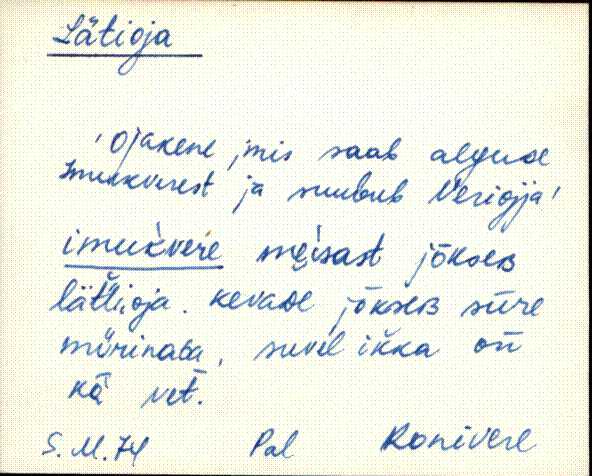 Lätioja
'Ojakene, mis saab alguse
Imukverest ja suubub Veriojja'
imukvere mèisast jõkseʙ
lättioja. kevade jõkseʙ süre
mürinaɢa, suvel ikka on
kä vet.
S. M. 74 Pal Ronivere